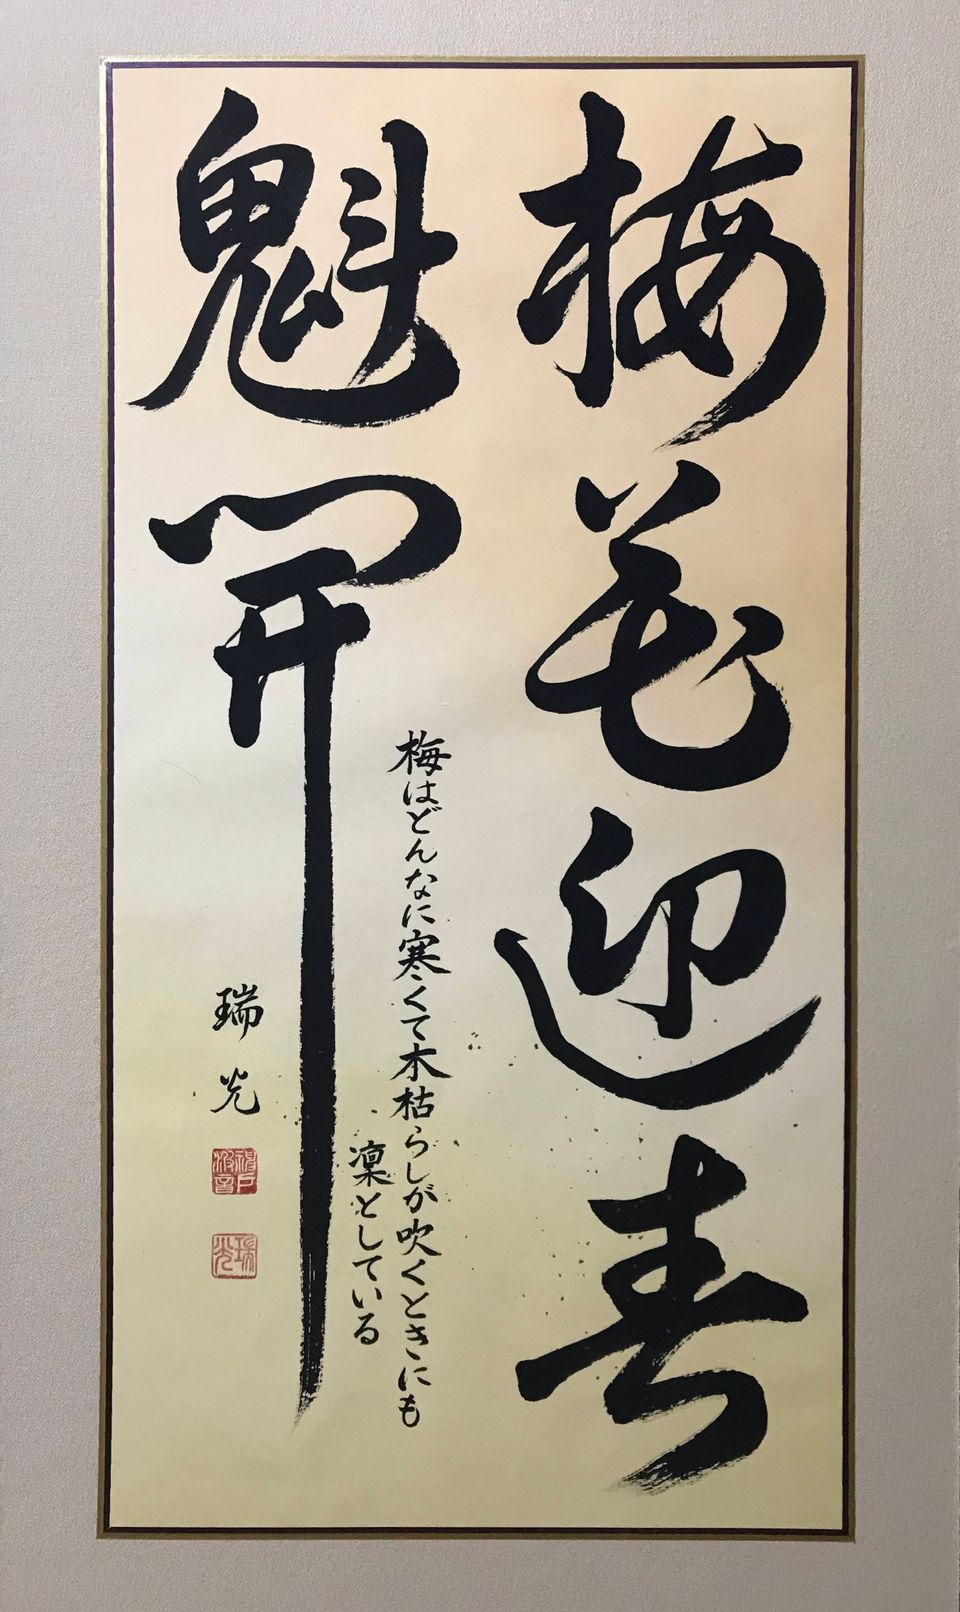 梅花迎春
魁開
梅はどんなに寒くて木枯らしが吹くときにも
凛としている
瑞光
瑞光